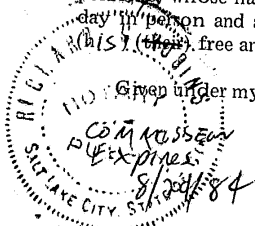 whose ha
day in person and a
(his) (their) free an
Given under my
RICHARD
BINS
NOTARY
Commisseon
Expires
8/20/84
SALT LAKE CITY, STATE